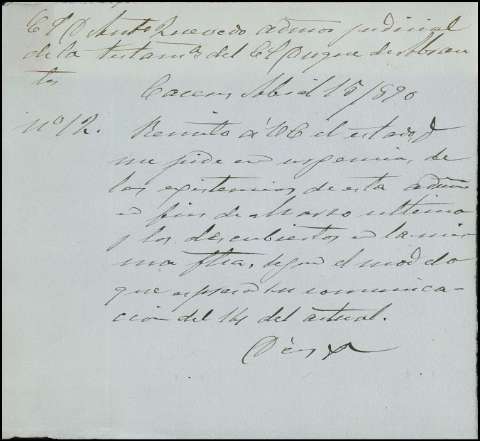 E S D Anto Quevedo admor judicial
de la testama del E S Duque de Abran
tes
Caceres Abril 15/890
No 12. Remito á VE el estado q
me pide con urgencia, de
las existencias de esta admon
en fin de Marzo ultimo
y los descubiertos en la mis
ma fha, segun el modelo
que espresa su comunica-
ción del 14 del actual.
Dios &